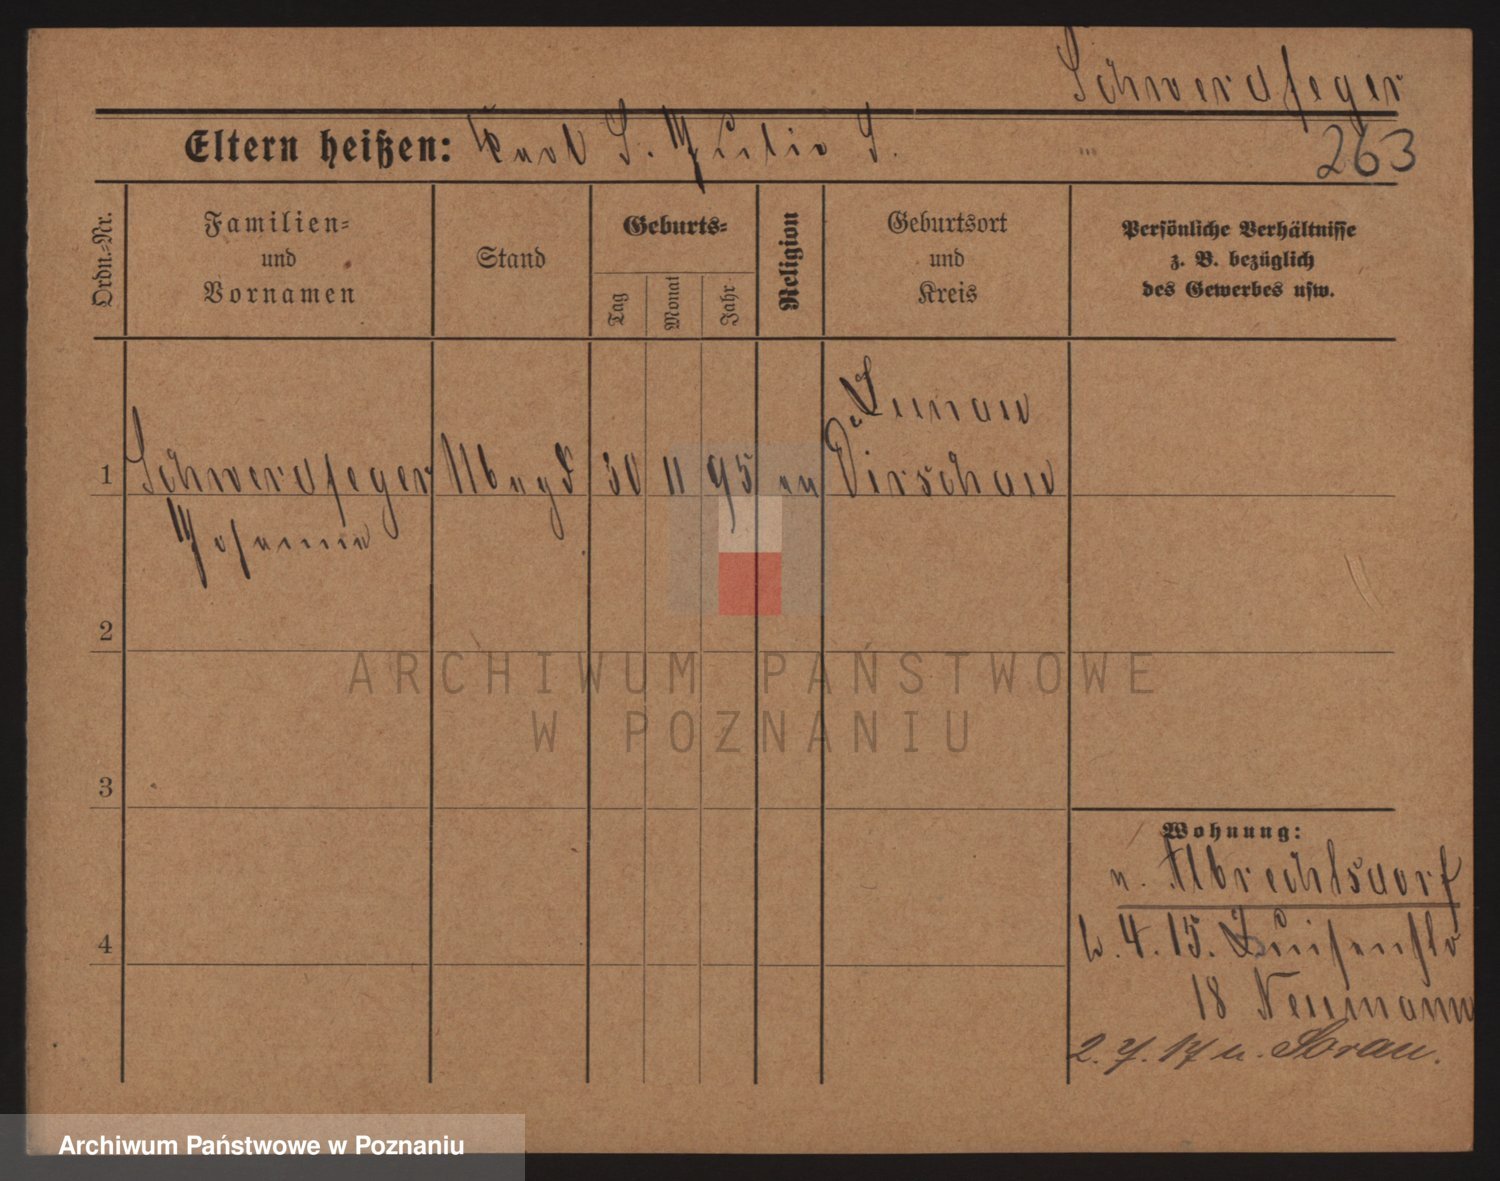 Schwerdfeger
Eltern heißen: Karl S. Julie S.
263
Ordn.-Nr.
Familien-
und
Vornamen
Stand
Geburts-
Tag
Monat
Jahr
Religion
Geburtsort
und
Kreis
Persönliche Verhältnisse
z. B. bezüglich
des Gewerbes usw.
Lunau
1 Schwerdfeger 30 11 95 ev Dirschau
Johanna
2
ARCHIWUM PAŃSTWOWE
W POZNANIU
3
Wohnung:
n. Albrechtsdorf
4
4. 15. Luisenstr
18 Neumann
2. 7. 17 n. Sorau.
Archiwum Państwowe w Poznaniu